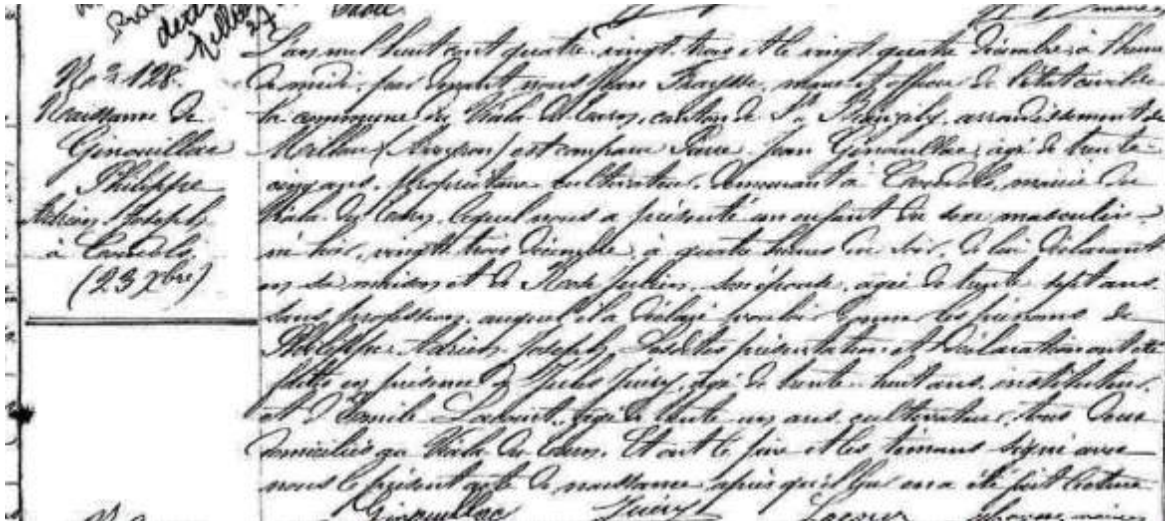 N° 128.
Naissance de
Ginouillac
Philippe
Adrien Joseph
à Candols
(23 Xbre)
L'an mil huit cent quatre-vingt-trois et le vingt quatre Décembre à l'heure
de midi, par devant nous Jean Fraysse, maire et officier de l'état civil de
la commune du Viala du Tarn, canton de St Beauzély, arrondissement de
Millau (Aveyron) est comparu Pierre Jean Ginouillac, agé de trente
cinq ans, propriétaire cultivateur, demeurant à Candols, mairie du
Viala du Tarn, lequel nous a présenté un enfant du sexe masculin
né hier, vingt trois Décembre, à quatre heures du soir, de lui déclarant
en sa maison et de Rose Julien, son épouse, agée de trente sept ans,
sans profession, auquel il a déclaré vouloir donner les prénoms de
Philippe Adrien Joseph. Lesdites présentation et déclaration ont été
faites en présence de Jules Juéry, agé de trente huit ans, instituteur,
et d'Emile agé de trente un ans, cultivateur, tous deux
domiciliés au Viala du Tarn. Et ont le père et les témoins signé avec
nous le présent acte de naissance après qu'il leur en a été fait lecture
Ginouillac Juéry maire